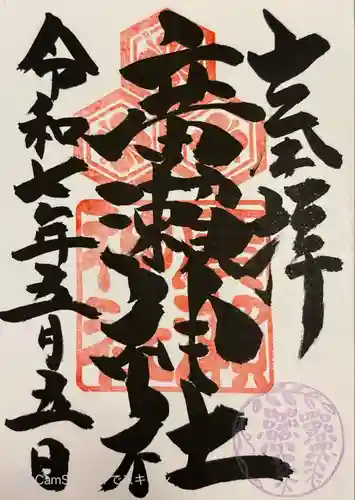 奉拝
廣瀬神社
令和七年五月五日
CamS でスキ